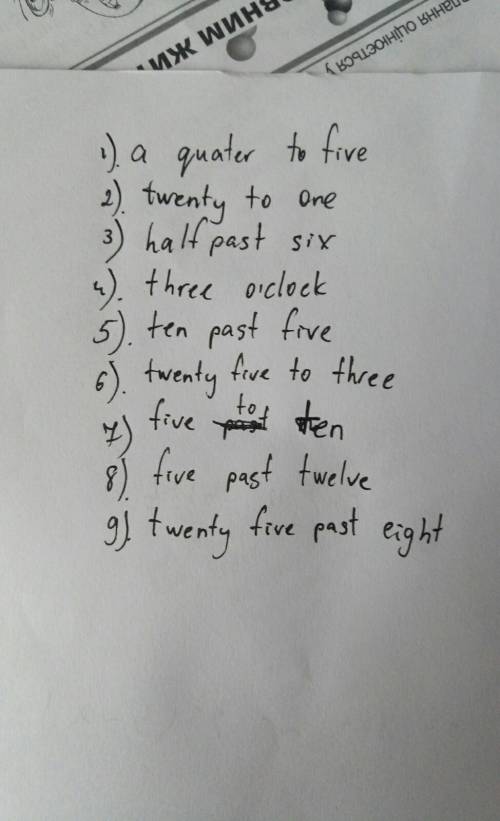 ОВНИМ ЖИ
оцінюється у
1). a quater to five
2). twenty to one
3) half past six
4). three o'clock
5). ten past five
6). twenty five to three
7) five to ten
8). five past twelve
9). twenty five past eight